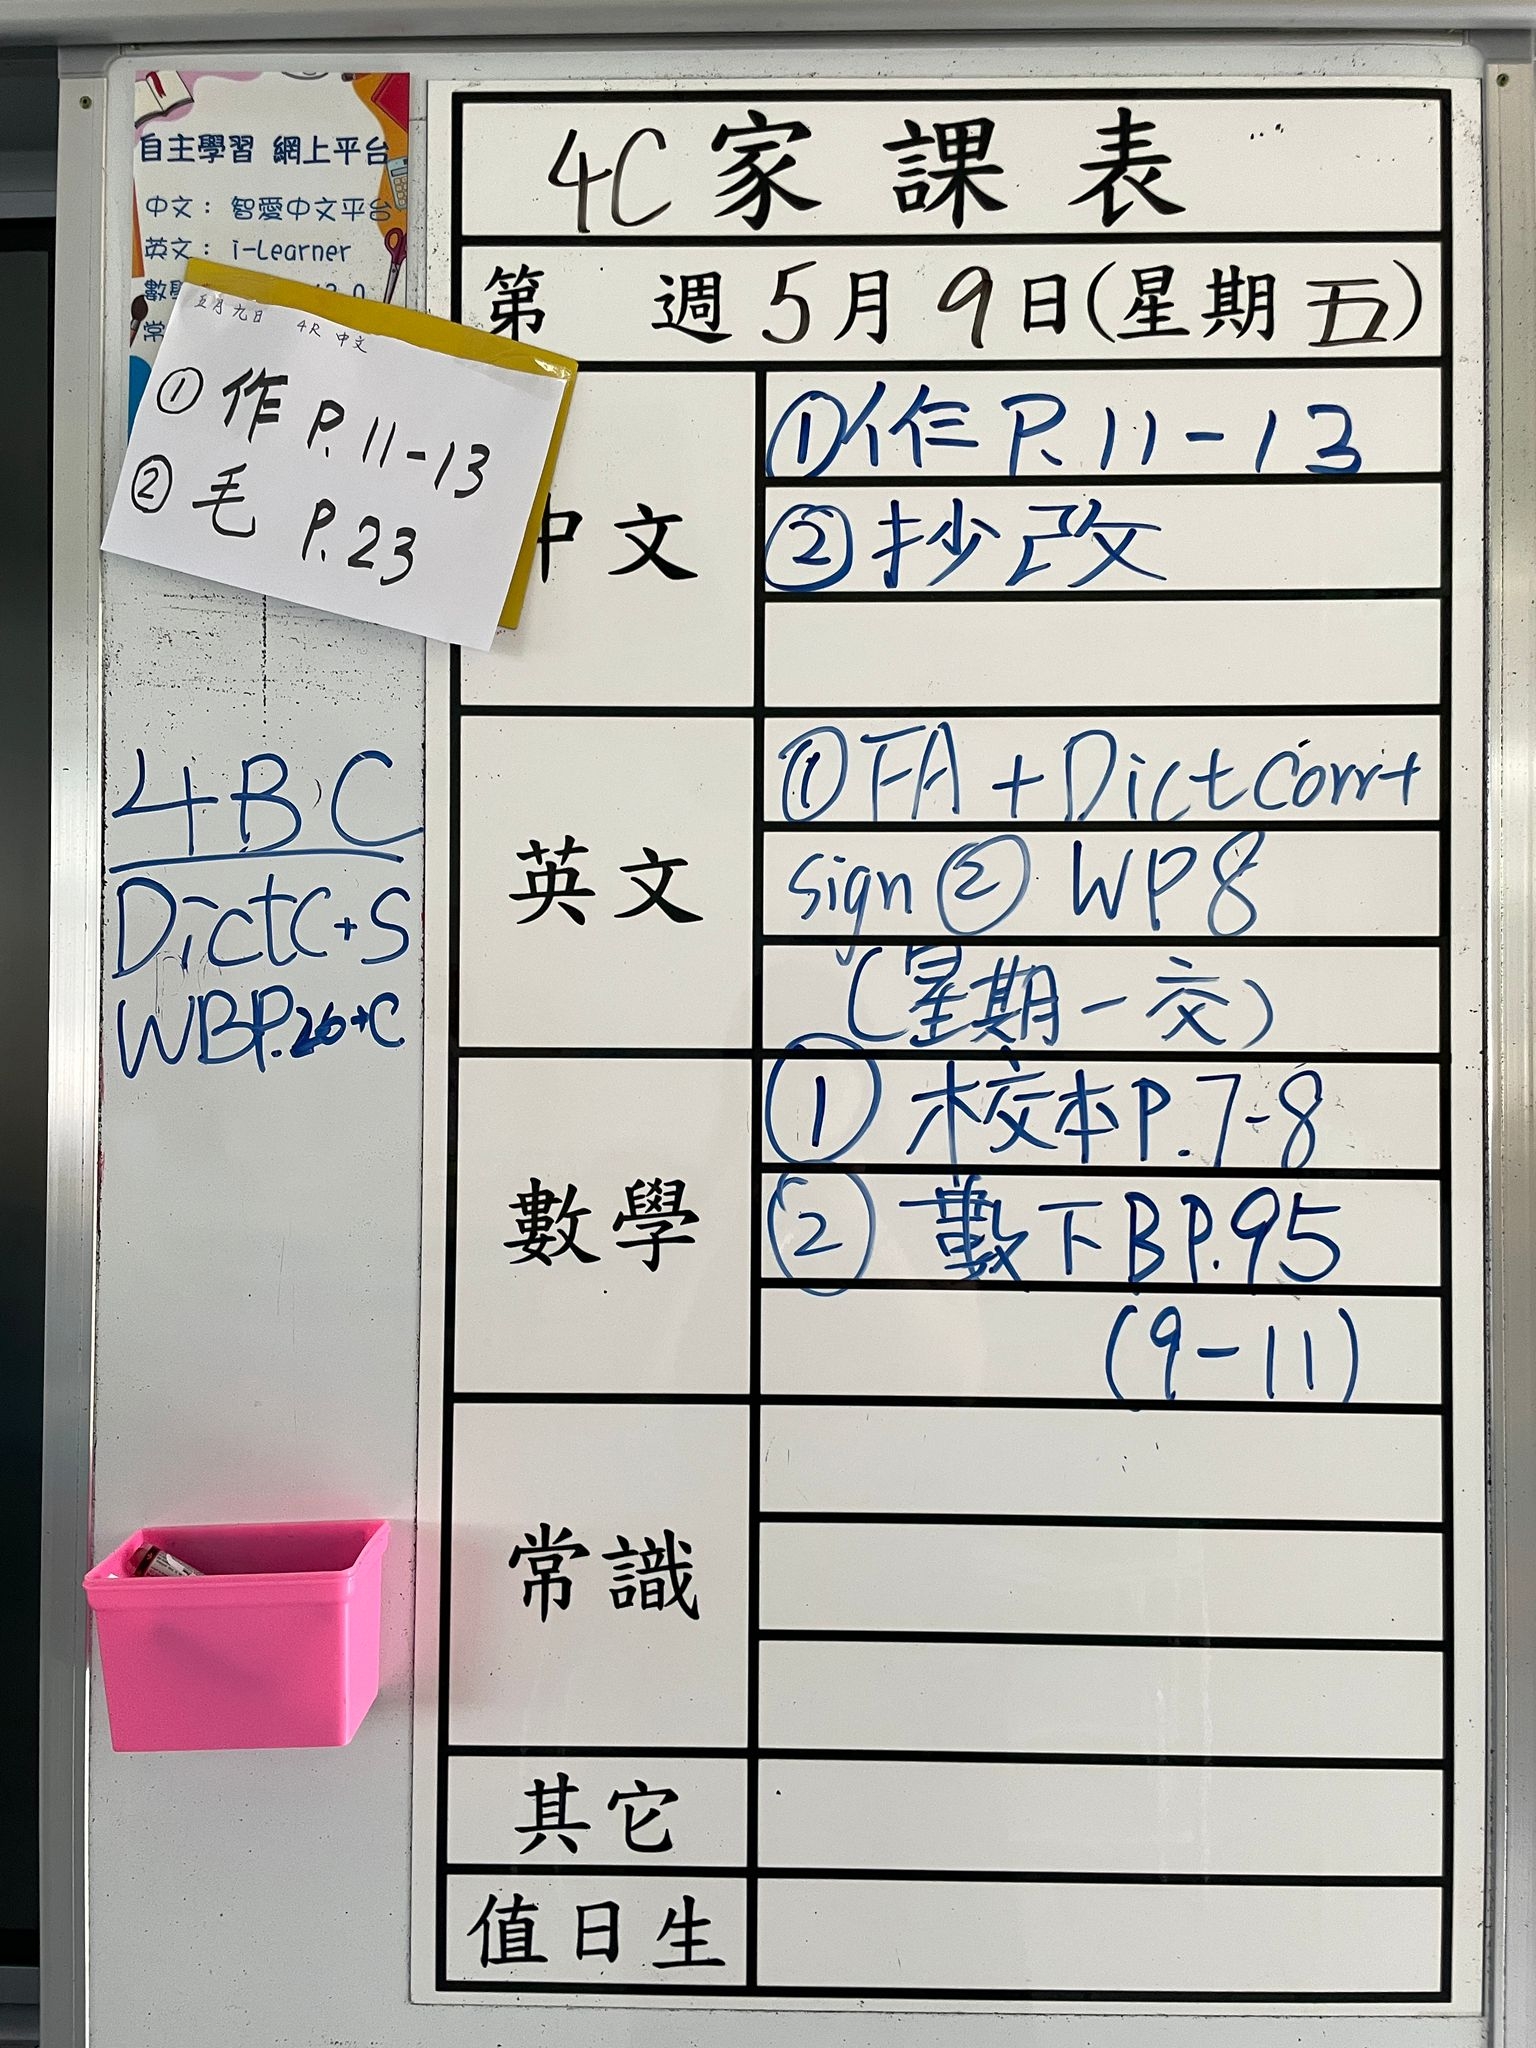 自主學習 網上平台
中文： 智愛中文平台
英文： i-Learner
五月九日 4R 中文
① 作 P.11-13
② 毛 P.23
4BC
DictC+S
WBP.26+C
4C家課表
第 週5月9日(星期五)
中文
①作P.11-13
②抄改
英文
①FA+Dict corr+
sign② WP8
(星期一交)
數學
① 校本P.7-8
② 數下BP.95
(9-11)
常識
其它
值日生